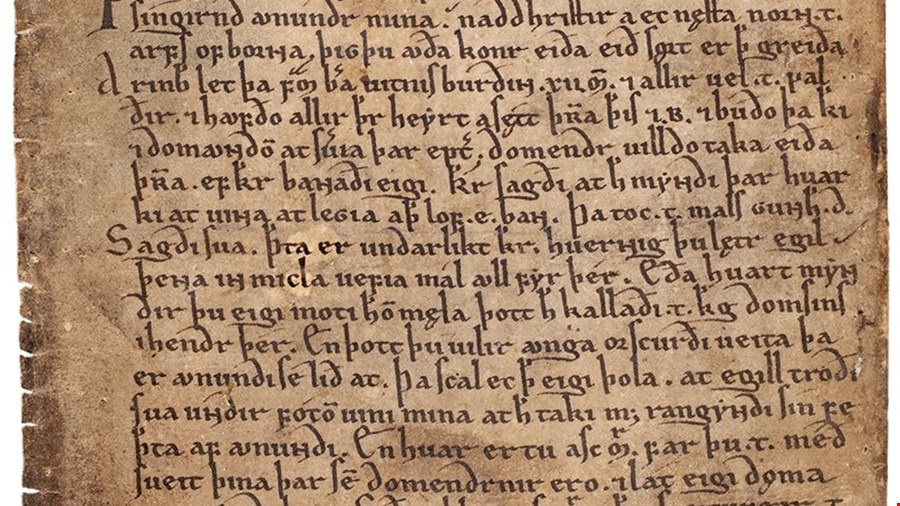 þingirnd ꜹnundr nuna. nadd hristir a ec nęsta. norn. t.
arfs of borna, þigþu ꜹða konr eiða eid sort er þ greiða
drinb let þa fm̄ ba vitnisburdin. xii. m̄. ⁊ allir vel. t. val
ðir. ⁊ hꜹfðo allir þr heyrt a sętt þra þis ⁊. B. ⁊ budo þa ki
⁊ domꜹndō at sůia þar epť. domendr villdo taka eiða
þra. ef kr banaði eigi. kr sagði at h mẏndi þar huar
ki at vina. at legia aþ lof. e. ban. Þa toc. t. mals gunh. d.
Sagði sua. þta er undarlikt kr. huernig þu lętr egil
þena in micla uefia mal ꜹll fyr þer. Eða huart mẏn
dir þu eigi moti hō męla þott h kallaði. t. kg domsins
⁊ hendr þer. En þott þu vilir ꜹnga orscurði ueita þa
er ꜹnundi se lid at. Þa scal ec þ eigi þola. at egill troði
sua undir fotō uini mina at h taki m; rangẏndi sin fe
þta af ꜹnundi. En huar ertu asc m̄. far þu. t. med
sueit þina þar sē domendrnir ero. ⁊ lat eigi doma